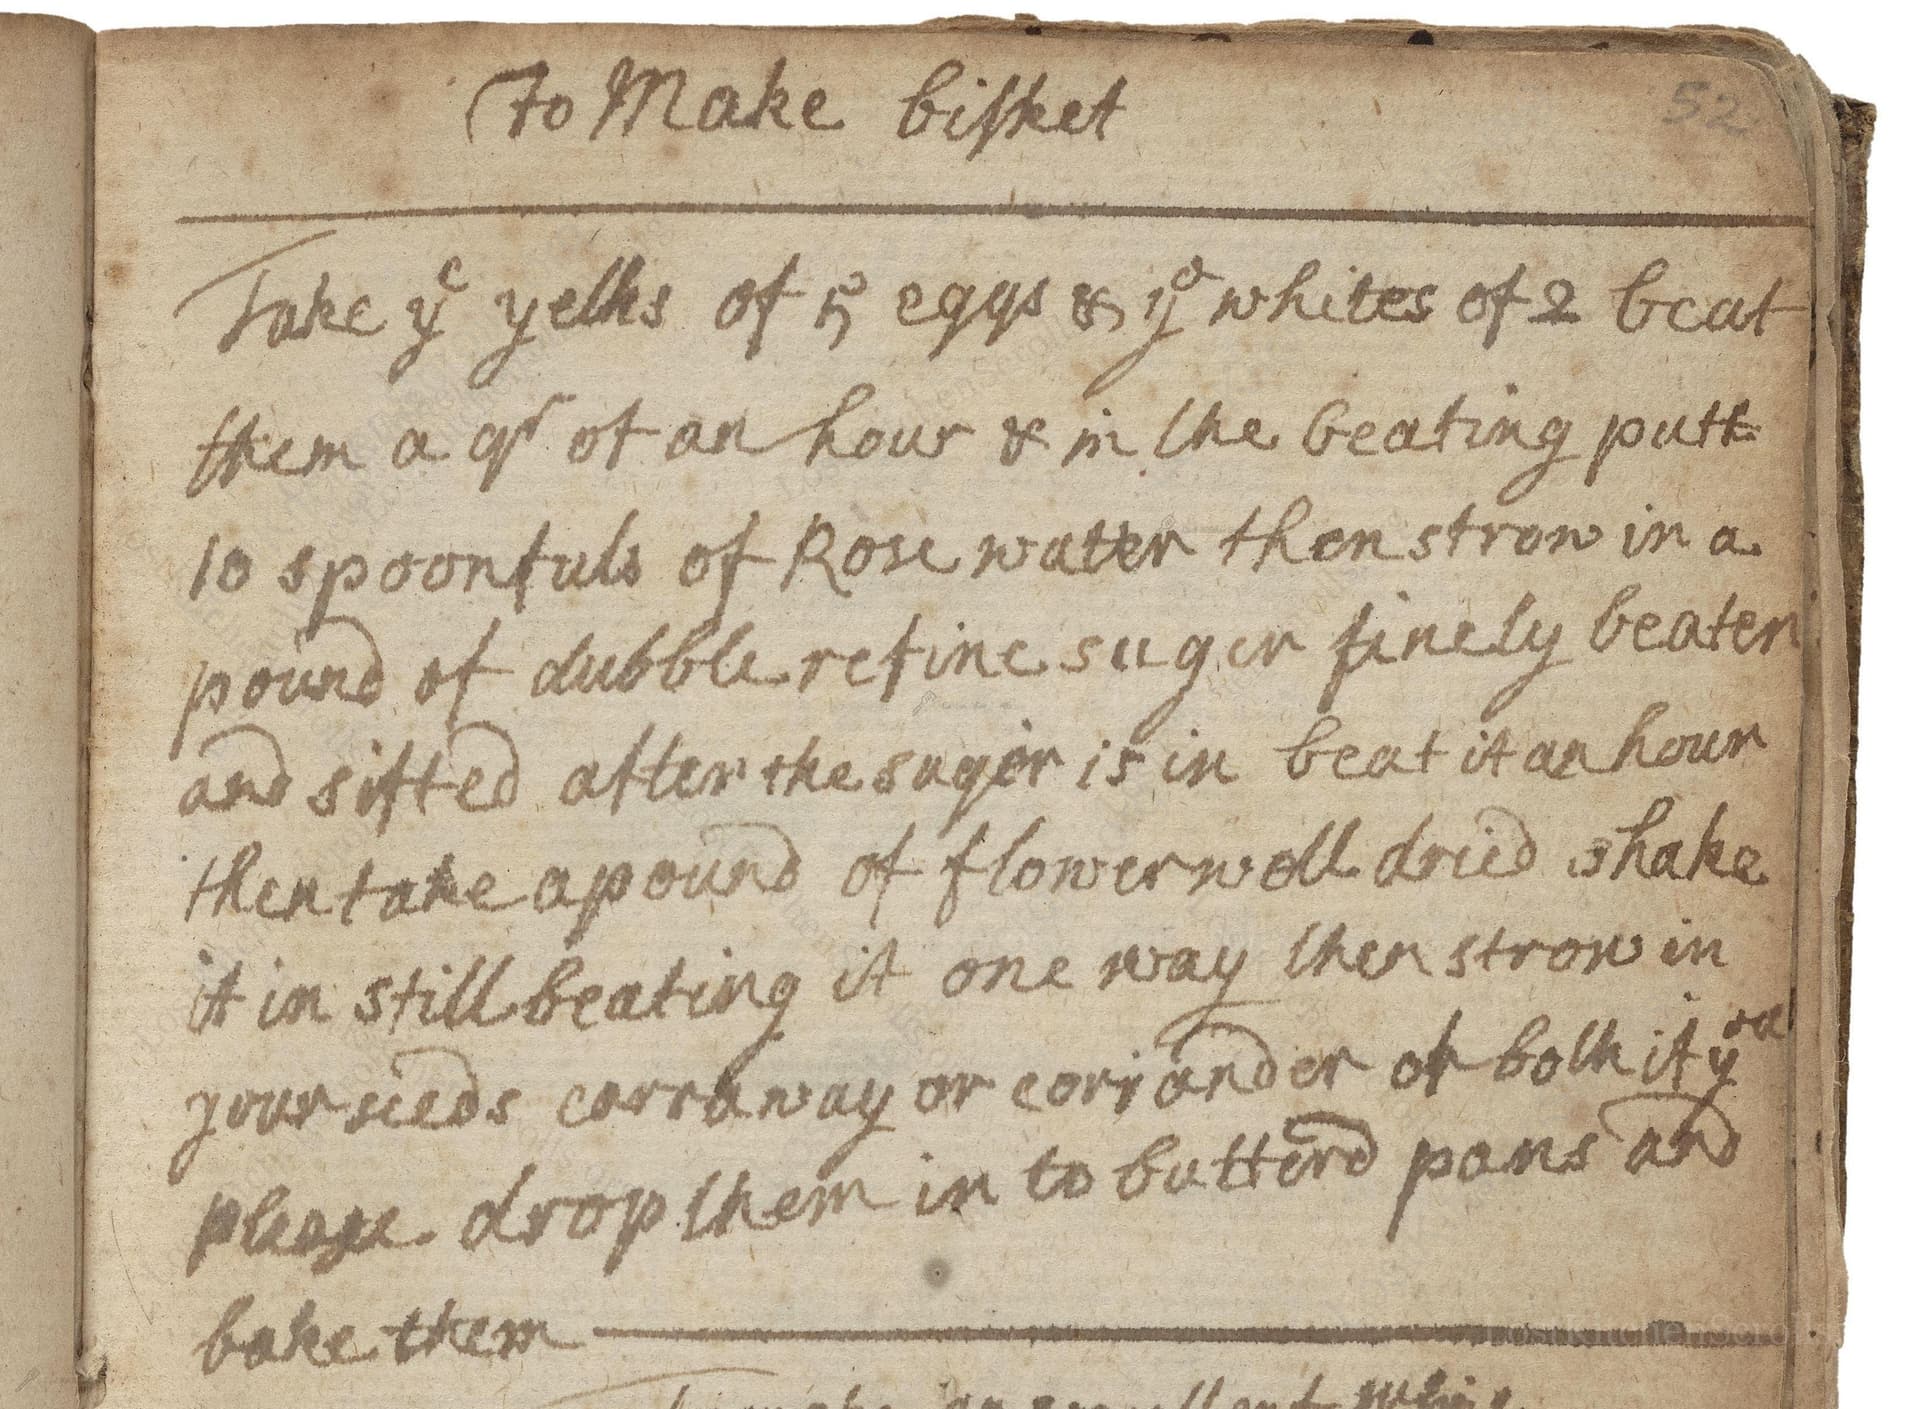 To Make bisket
52
Take ye yelks of 5 eggs & ye whites of 2 beat
them a qr of an hour & in the beating putt
10 spoonfuls of Rose water then strow in a
pound of dubble refine suger finely beaten
and sifted after the suger is in beat it an hour
then take a pound of flower well dried shake
it in still beating it one way then strow in
your seeds carraway or coriander or both if you
please drop them in to butterd pans and
bake them
to make an excellent